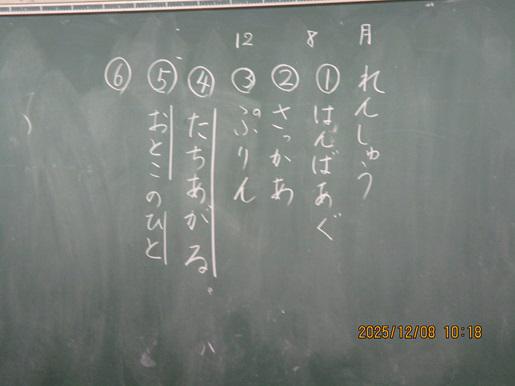 12 8 月
れんしゅう
① はんばあぐ
② さっかあ
③ ぷりん
④ たちあがる
⑤ おとこのひと
⑥
2025/12/08 10:18